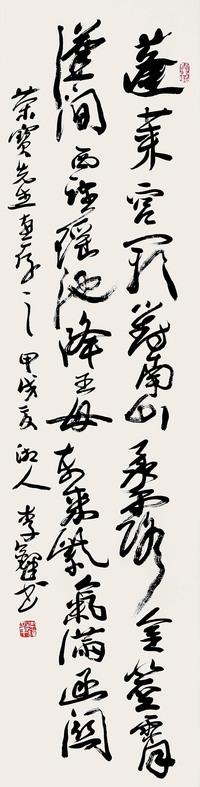 蓬莱宫阙对南山承露金茎霄
汉间西望瑶池降王母东来紫气满函关
荣宝先生惠存之甲戌夏湖人李铎书